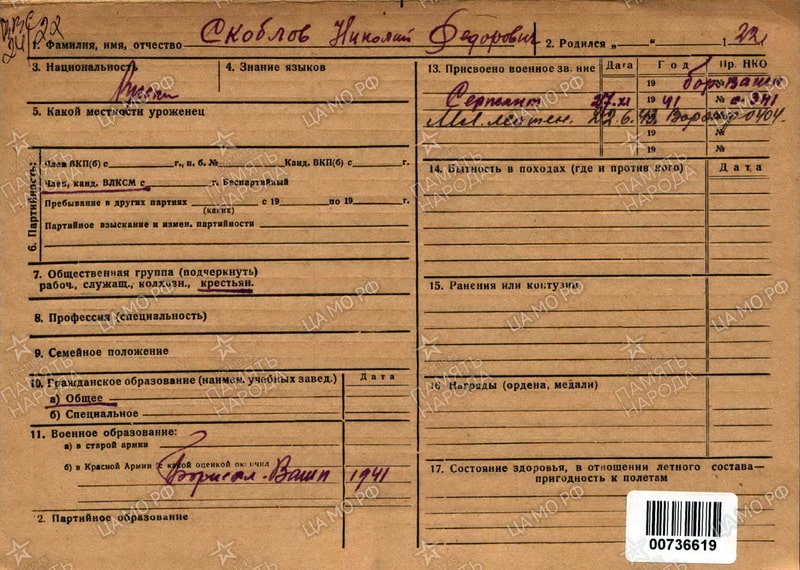 22
1. Фамилия, имя, отчество Скоблов Николай Федорович 2. Родился „ “ 1 22
3. Национальность Русский
4. Знание языков
5. Какой местности уроженец
6. Партийность:
Член ВКП(б) с г., п. б. № Канд. ВКП(б) с г.
Член, канд. ВЛКСМ с г. Беспартийный
Пребывание в других партиях с 19 по 19 г.
(каких)
Партийное взыскание и измен. партийности
7. Общественная группа (подчеркнуть)
рабоч., служащ., колхозн., крестьян.
8. Профессия (специальность)
9. Семейное положение
10. Гражданское образование (наимен. учебных завед.) Дата
а) Общее
б) Специальное
11. Военное образование:
а) в старой армии
б) в Красной Армии с какой оценкой окончил
Борисогл. Вашп 1941
2. Партийное образование
13. Присвоено военное звание Дата Год Пр. НКО
19 № бор Вашп
Сержант 27.XI 1941 № с 341
Мл. лейтен. 22.6.43 0404.
19 №
19 №
14. Бытность в походах (где и против кого) Дата
15. Ранения или контузии
16. Награды (ордена, медали)
17. Состояние здоровья, в отношении летного состава—
пригодность к полетам
00736619
ПАМЯТЬ НАРОДА
ЦА МО РФ